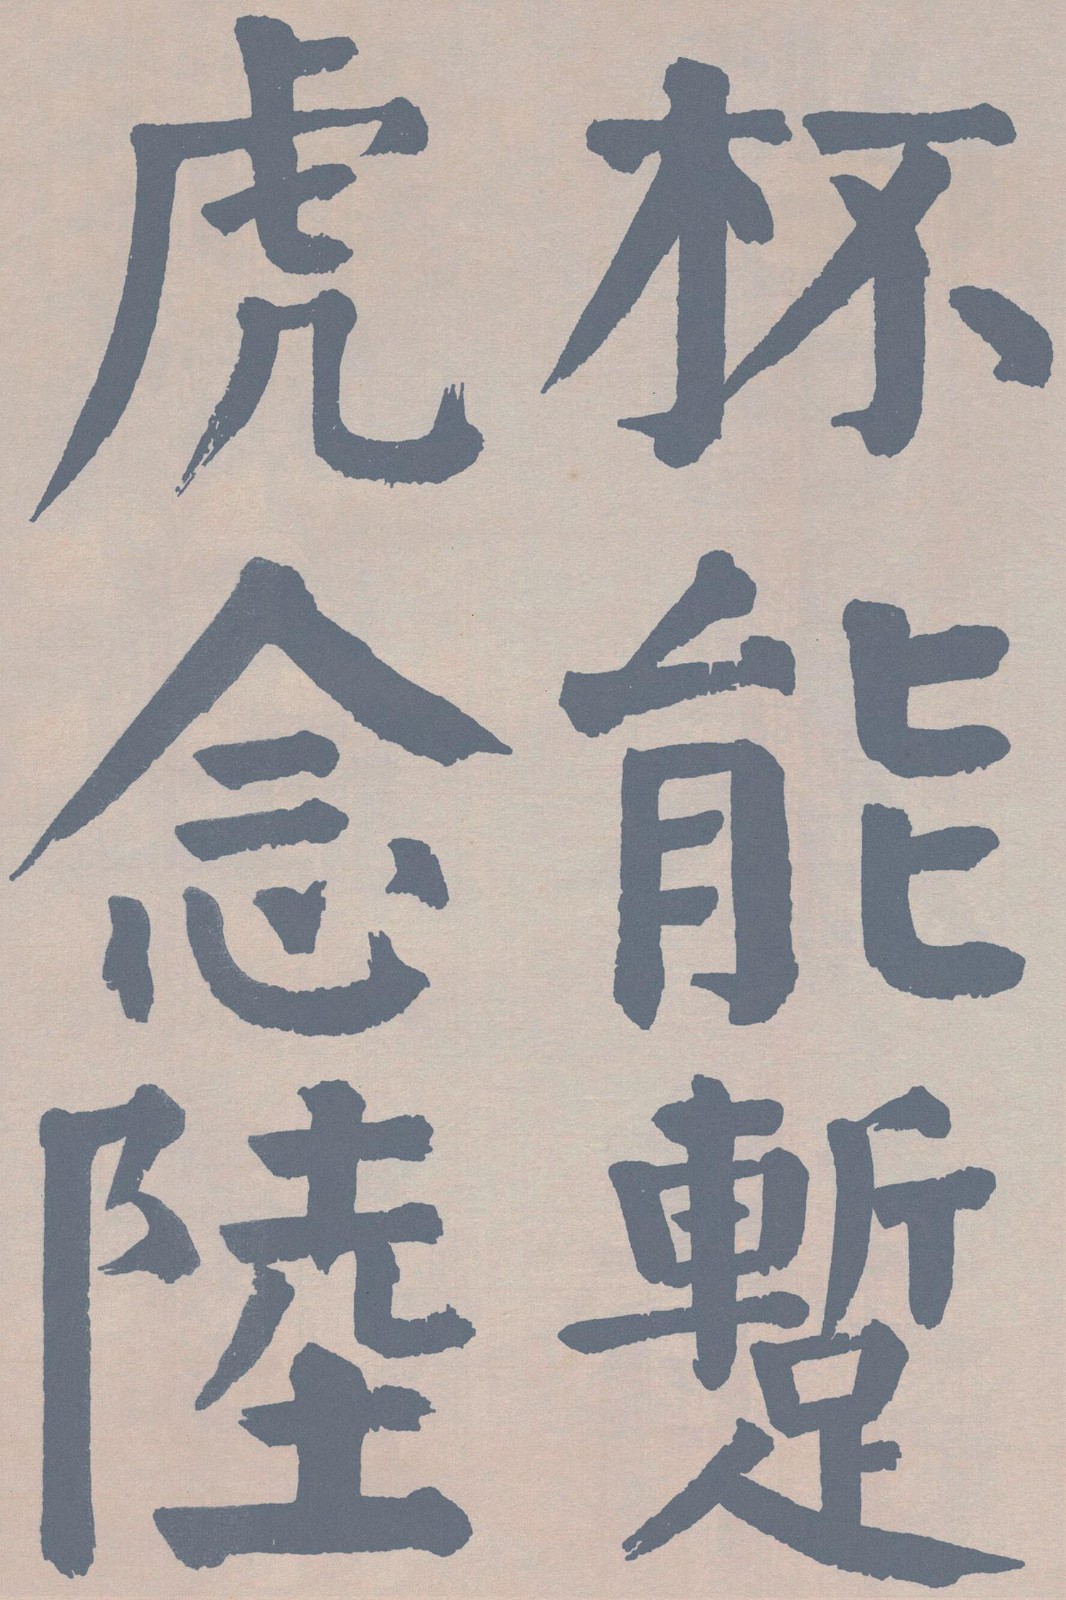 杯能蹔
虎念陸